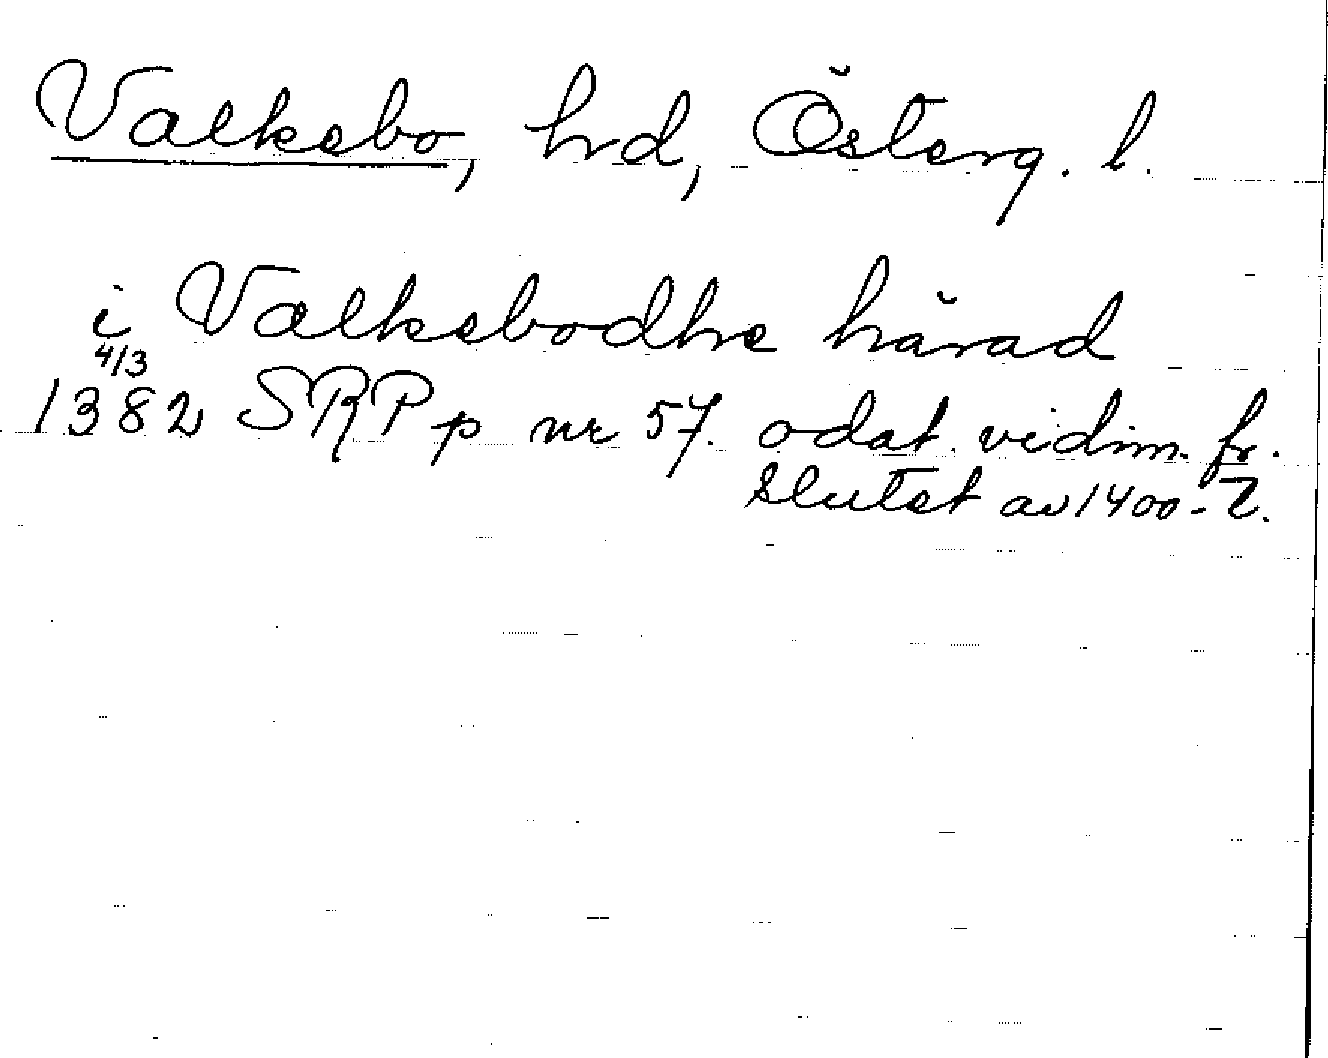 Valkebo, hrd, Österg. l.
i Valkebodhe härad
4/3
1382 SRPp nr 57. odat. vidim. fr.
slutet av 1400-t.